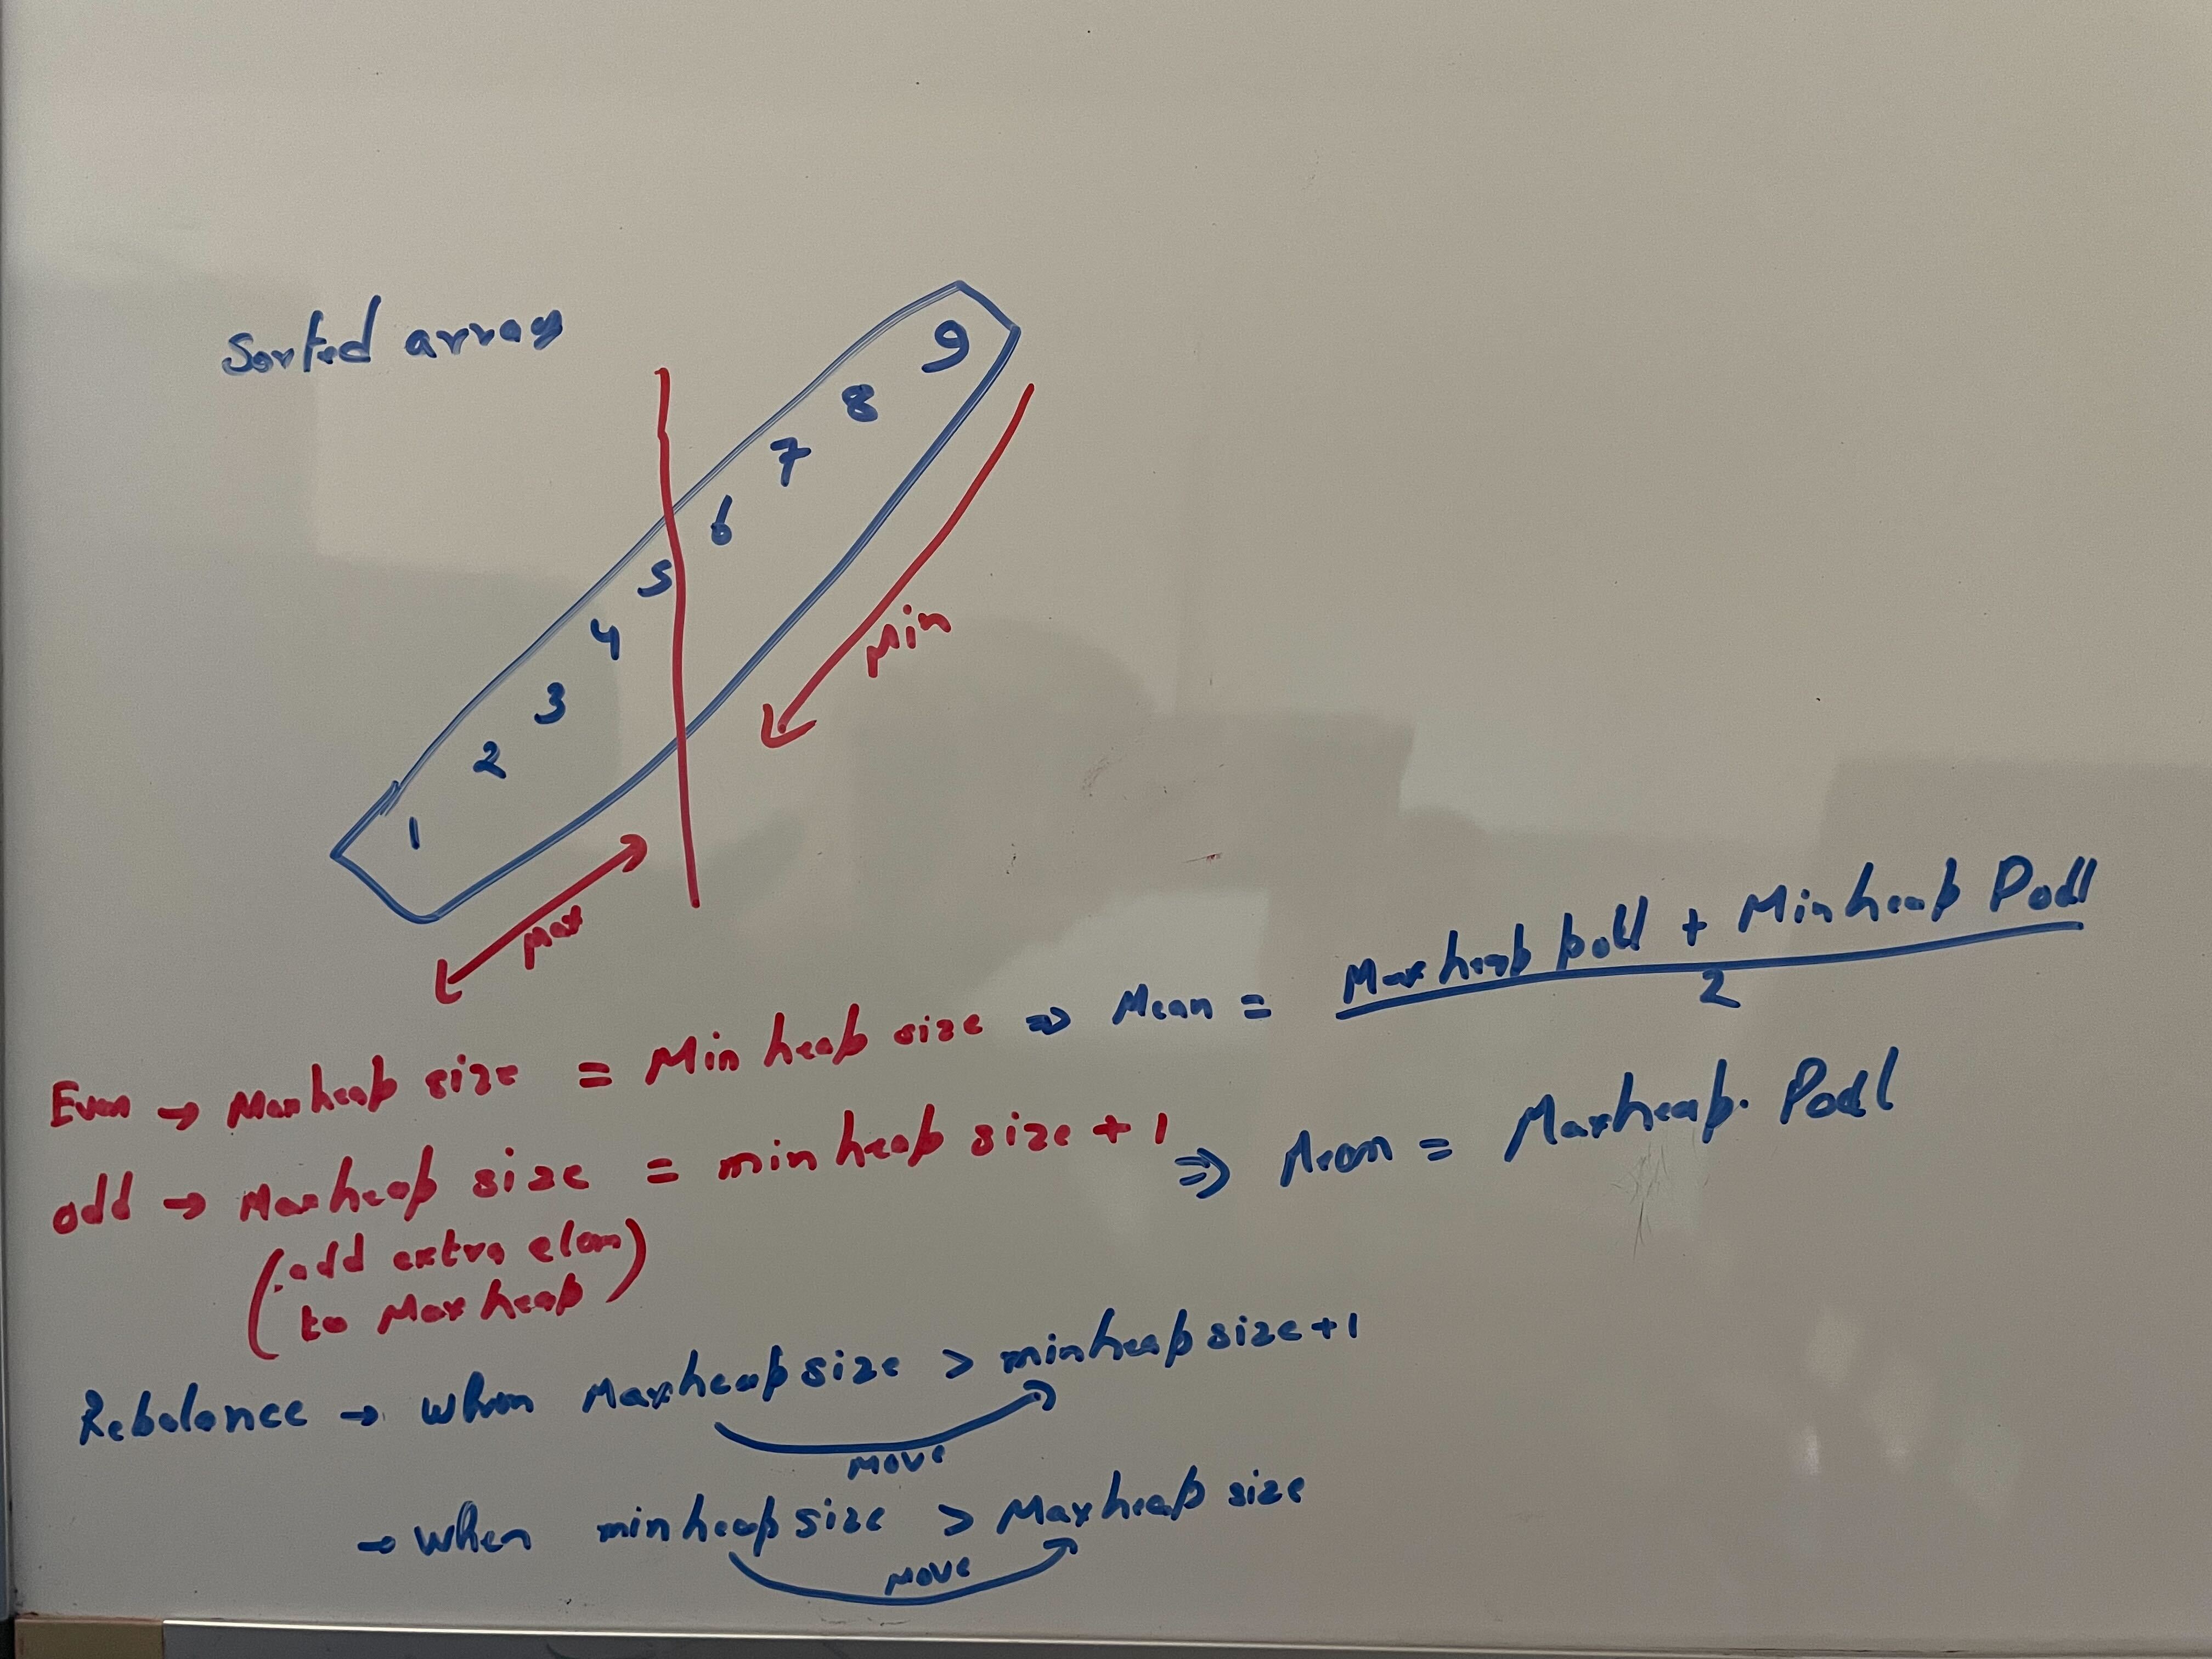 Sorted array
9
8
7
6
5
4
3
2
1
Min
Max
Even → Maxheap size = Min heap size ⇒ Mean = Maxheap poll + Minheap Poll
2
odd → Maxheap size = minheap size + 1 ⇒ Mean = Maxheap. Poll
(add extra elem
to Maxheap)
Rebalance → when Maxheap size > minheap size+1
move
→ when minheap size > Maxheap size
move